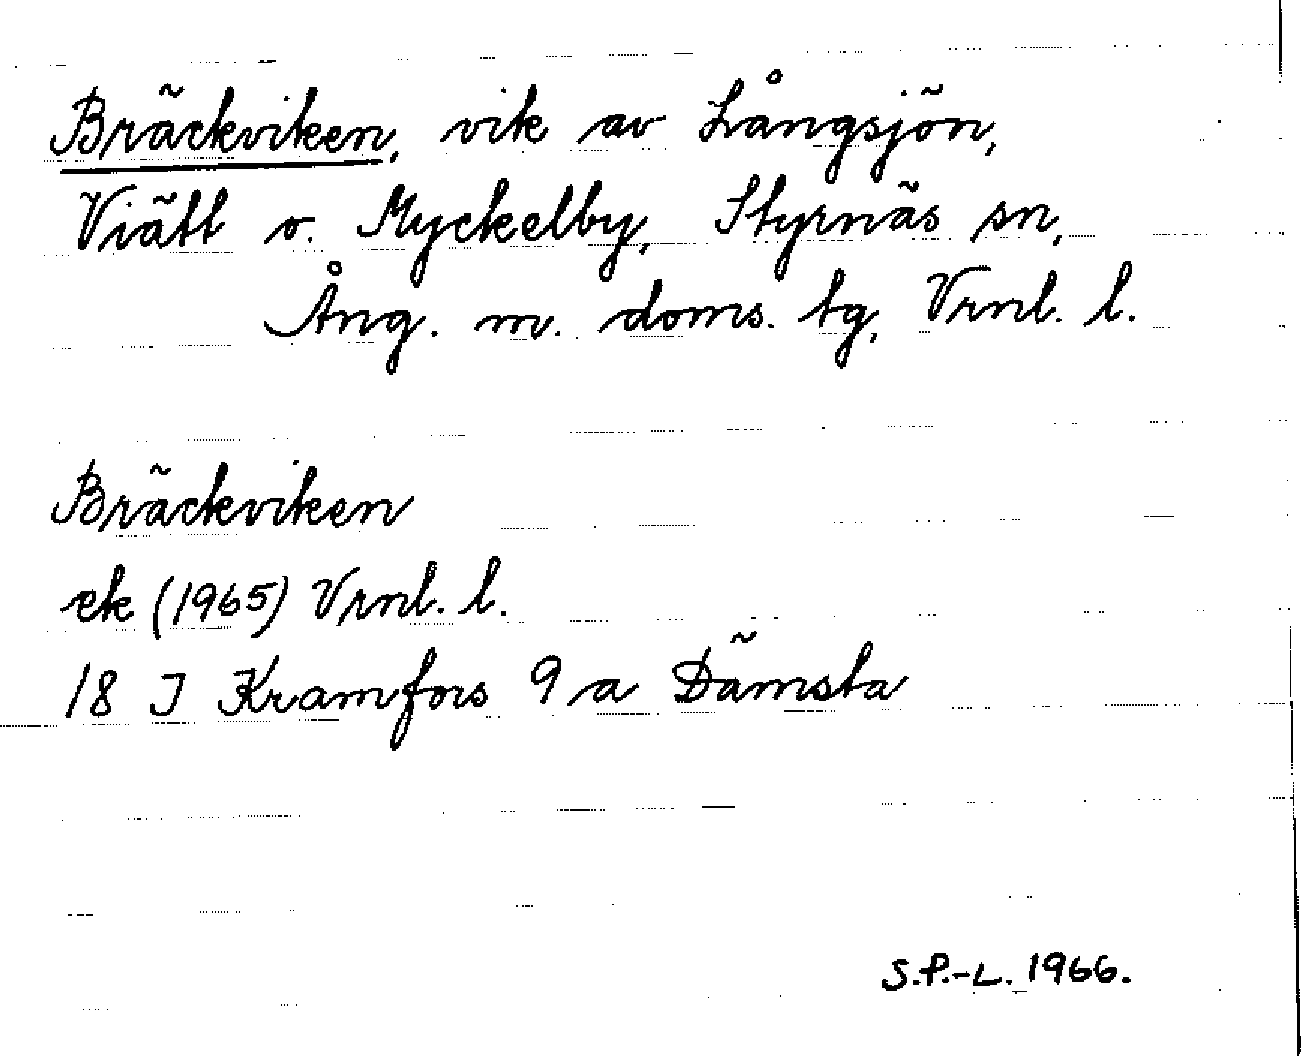 Bräckviken, vik av Långsjön,
Viätt o. Myckelby, Styrnäs sn,
Ång. m. doms. tg, Vrnl. l.
Bräckviken
ek (1965) Vrnl. l.
18 I Kramfors 9 a Dämsta
S.P.-L. 1966.